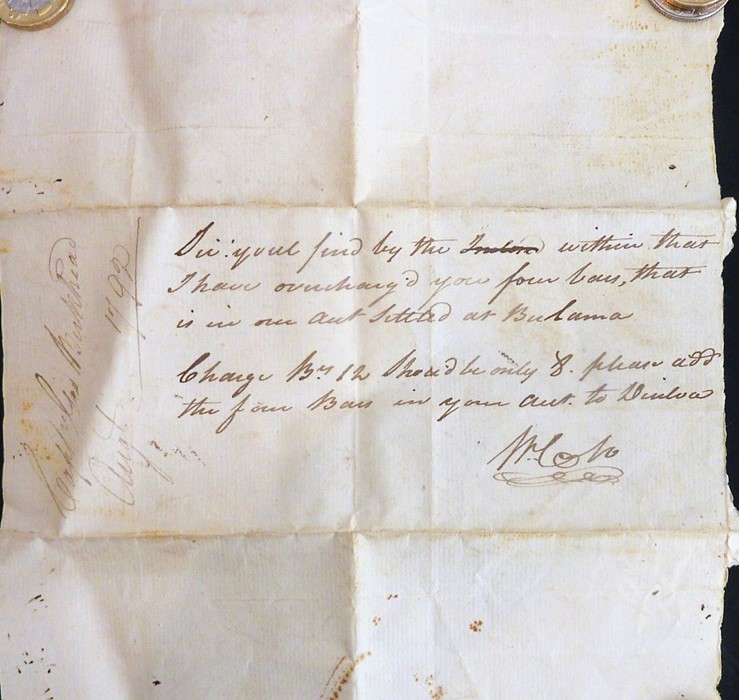 Sir. youl find by the within that
I have overcharg'd you four bars, that
is in our Acct Settled at Bulama
Charge Brs 12 Should be only 8. please add
the four Bars in your Acct. to
Wm Cole
Augt. 1792